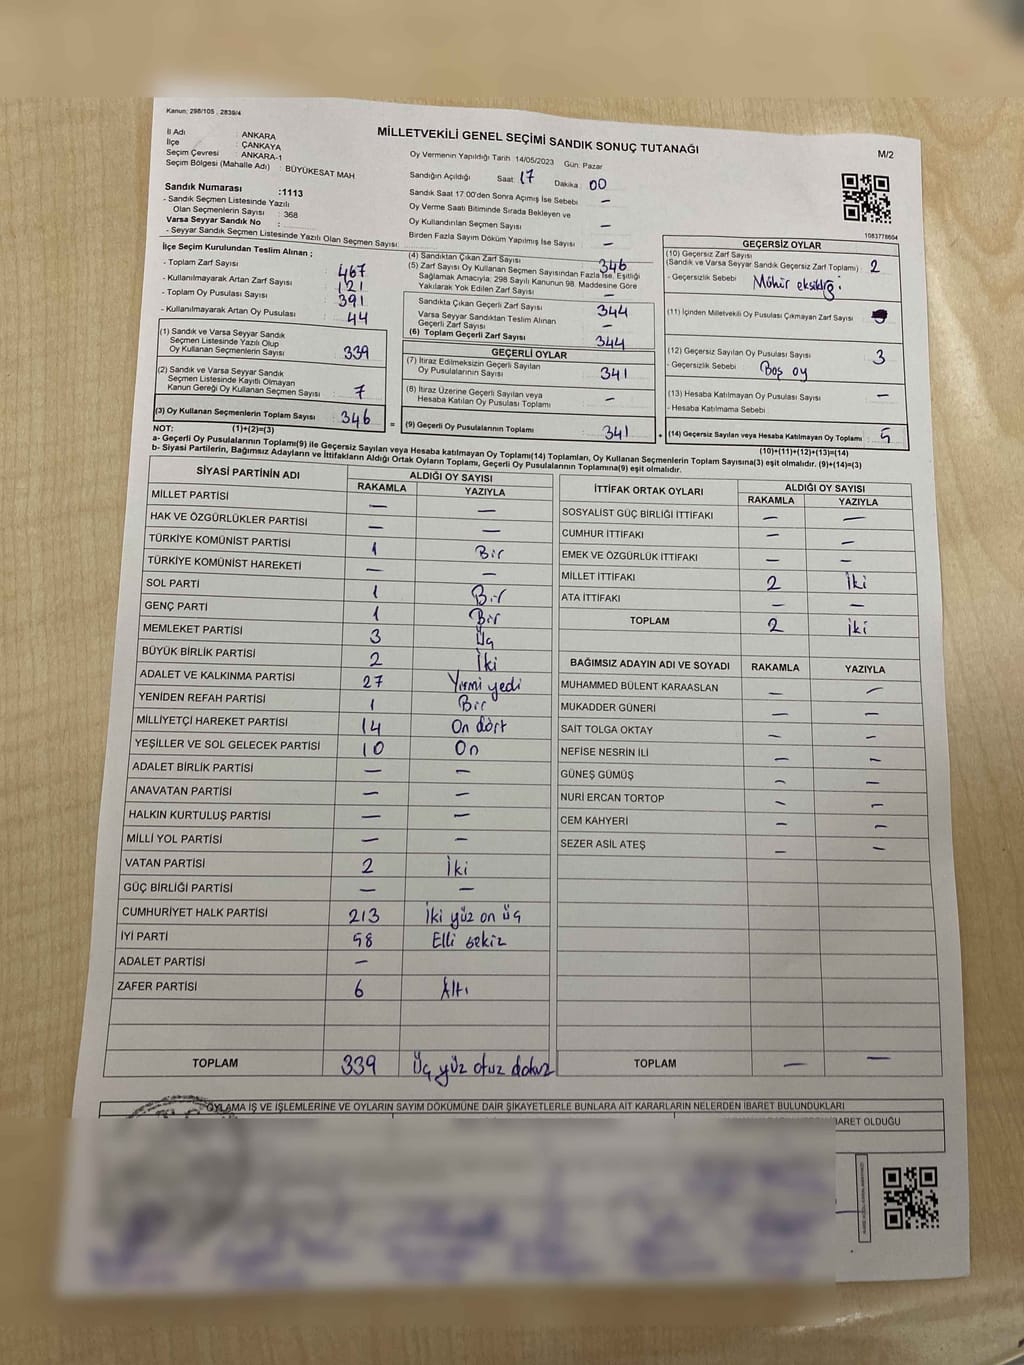 Kanun: 298/105 , 2839/4
MİLLETVEKİLİ GENEL SEÇİMİ SANDIK SONUÇ TUTANAĞI
M/2
İl Adı : ANKARA
İlçe : ÇANKAYA
Seçim Çevresi : ANKARA-1
Seçim Bölgesi (Mahalle Adı) : BÜYÜKESAT MAH
Sandık Numarası :1113
- Sandık Seçmen Listesinde Yazılı
Olan Seçmenlerin Sayısı : 368
Varsa Seyyar Sandık No :
- Seyyar Sandık Seçmen Listesinde Yazılı Olan Seçmen Sayısı:
Oy Vermenin Yapıldığı Tarih 14/05/2023 Gün: Pazar
Sandığın Açıldığı Saat 17 Dakika 00
Sandık Saat 17:00'den Sonra Açımış İse Sebebi –
Oy Verme Saati Bitiminde Sırada Bekleyen ve
Oy Kullandırılan Seçmen Sayısı –
Birden Fazla Sayım Döküm Yapılmış İse Sayısı –
1083778664
İlçe Seçim Kurulundan Teslim Alınan ;
- Toplam Zarf Sayısı 467
- Kullanılmayarak Artan Zarf Sayısı 121
- Toplam Oy Pusulası Sayısı 391
- Kullanılmayarak Artan Oy Pusulası 44
(1) Sandık ve Varsa Seyyar Sandık
Seçmen Listesinde Yazılı Olup
Oy Kullanan Seçmenlerin Sayısı 339
(2) Sandık ve Varsa Seyyar Sandık
Seçmen Listesinde Kayıtlı Olmayan
Kanun Gereği Oy Kullanan Seçmen Sayısı 7
(3) Oy Kullanan Seçmenlerin Toplam Sayısı 346 =
(4) Sandıktan Çıkan Zarf Sayısı 346
(5) Zarf Sayısı Oy Kullanan Seçmen Sayısından Fazla İse, Eşitliği
Sağlamak Amacıyla; 298 Sayılı Kanunun 98. Maddesine Göre
Yakılarak Yok Edilen Zarf Sayısı –
Sandıkta Çıkan Geçerli Zarf Sayısı 344
Varsa Seyyar Sandıktan Teslim Alınan
Geçerli Zarf Sayısı –
(6) Toplam Geçerli Zarf Sayısı 344
GEÇERLİ OYLAR
(7) İtiraz Edilmeksizin Geçerli Sayılan
Oy Pusulalarının Sayısı 341
(8) İtiraz Üzerine Geçerli Sayılan veya
Hesaba Katılan Oy Pusulası Toplamı –
(9) Geçerli Oy Pusulalarının Toplamı 341 +
GEÇERSİZ OYLAR
(10) Geçersiz Zarf Sayısı
(Sandık ve Varsa Seyyar Sandık Geçersiz Zarf Toplamı) 2
- Geçersizlik Sebebi Mühür eksikliği
(11) İçinden Milletvekili Oy Pusulası Çıkmayan Zarf Sayısı
(12) Geçersiz Sayılan Oy Pusulası Sayısı 3
- Geçersizlik Sebebi Boş oy
(13) Hesaba Katılmayan Oy Pusulası Sayısı –
- Hesaba Katılmama Sebebi
(14) Geçersiz Sayılan veya Hesaba Katılmayan Oy Toplamı 5
NOT: (1)+(2)=(3)
(10)+(11)+(12)+(13)=(14)
a- Geçerli Oy Pusulalarının Toplamı(9) ile Geçersiz Sayılan veya Hesaba katılmayan Oy Toplamı(14) Toplamları, Oy Kullanan Seçmenlerin Toplam Sayısına(3) eşit olmalıdır. (9)+(14)=(3)
b- Siyasi Partilerin, Bağımsız Adayların ve İttifakların Aldığı Ortak Oyların Toplamı, Geçerli Oy Pusulalarının Toplamına(9) eşit olmalıdır.
SİYASİ PARTİNİN ADI ALDIĞI OY SAYISI
RAKAMLA YAZIYLA
MİLLET PARTİSİ – –
HAK VE ÖZGÜRLÜKLER PARTİSİ – –
TÜRKİYE KOMÜNİST PARTİSİ 1 Bir
TÜRKİYE KOMÜNİST HAREKETİ – –
SOL PARTİ 1 Bir
GENÇ PARTİ 1 Bir
MEMLEKET PARTİSİ 3 Üç
BÜYÜK BİRLİK PARTİSİ 2 İki
ADALET VE KALKINMA PARTİSİ 27 Yirmi yedi
YENİDEN REFAH PARTİSİ 1 Bir
MİLLİYETÇİ HAREKET PARTİSİ 14 On dört
YEŞİLLER VE SOL GELECEK PARTİSİ 10 On
ADALET BİRLİK PARTİSİ – –
ANAVATAN PARTİSİ – –
HALKIN KURTULUŞ PARTİSİ – –
MİLLİ YOL PARTİSİ – –
VATAN PARTİSİ 2 İki
GÜÇ BİRLİĞİ PARTİSİ – –
CUMHURİYET HALK PARTİSİ 213 İki yüz on üç
İYİ PARTİ 58 Elli sekiz
ADALET PARTİSİ –
ZAFER PARTİSİ 6 Altı
TOPLAM 339 Üç yüz otuz dokuz
İTTİFAK ORTAK OYLARI ALDIĞI OY SAYISI
RAKAMLA YAZIYLA
SOSYALİST GÜÇ BİRLİĞİ İTTİFAKI – –
CUMHUR İTTİFAKI – –
EMEK VE ÖZGÜRLÜK İTTİFAKI – –
MİLLET İTTİFAKI 2 İki
ATA İTTİFAKI – –
TOPLAM 2 İki
BAĞIMSIZ ADAYIN ADI VE SOYADI RAKAMLA YAZIYLA
MUHAMMED BÜLENT KARAASLAN – –
MUKADDER GÜNERİ – –
SAİT TOLGA OKTAY – –
NEFİSE NESRİN İLİ – –
GÜNEŞ GÜMÜŞ – –
NURİ ERCAN TORTOP – –
CEM KAHYERİ – –
SEZER ASİL ATEŞ – –
TOPLAM – –
OYLAMA İŞ VE İŞLEMLERİNE VE OYLARIN SAYIM DÖKÜMÜNE DAİR ŞİKAYETLERLE BUNLARA AİT KARARLARIN NELERDEN İBARET BULUNDUKLARI
BARET OLDUĞU